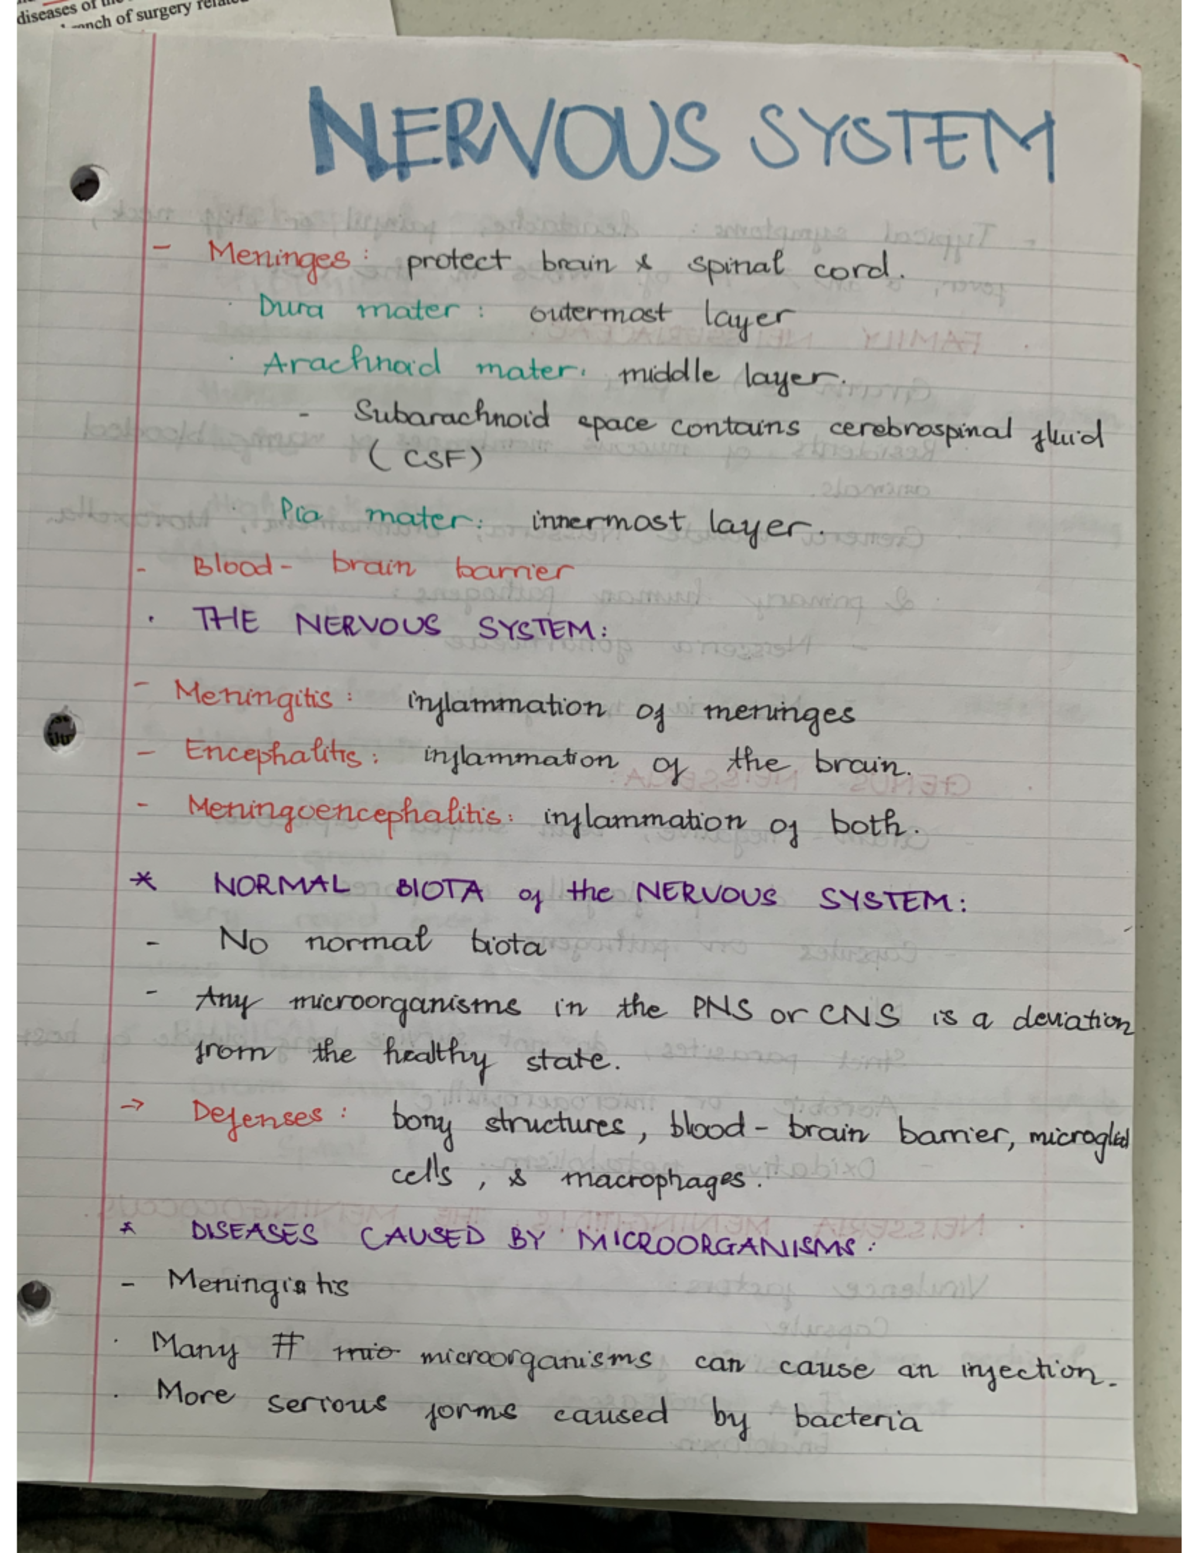 diseases of
branch of surgery
NERVOUS SYSTEM
- Meninges: protect brain & spinal cord.
· Dura mater: outermost layer
· Arachnoid mater: middle layer.
- Subarachnoid space contains cerebrospinal fluid
(CSF)
· Pia mater: innermost layer.
- Blood-brain barrier
· THE NERVOUS SYSTEM:
- Meningitis: inflammation of meninges
- Encephalitis: inflammation of the brain.
- Meningoencephalitis: inflammation of both.
* NORMAL BIOTA of the NERVOUS SYSTEM:
- No normal biota
- Any microorganisms in the PNS or CNS is a deviation
from the healthy state.
→ Defenses: bony structures, blood-brain barrier, microglial
cells, & macrophages.
* DISEASES CAUSED BY MICROORGANISMS:
- Meningitis
· Many # mio microorganisms can cause an infection.
· More serious forms caused by bacteria